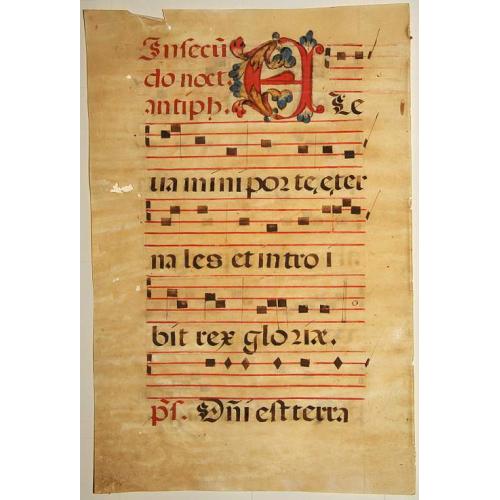 In secū
do noct
antiph. E Le
ua mini por te, eter
na les et intro i
bit rex gloriæ.
ps. Dñi est terra